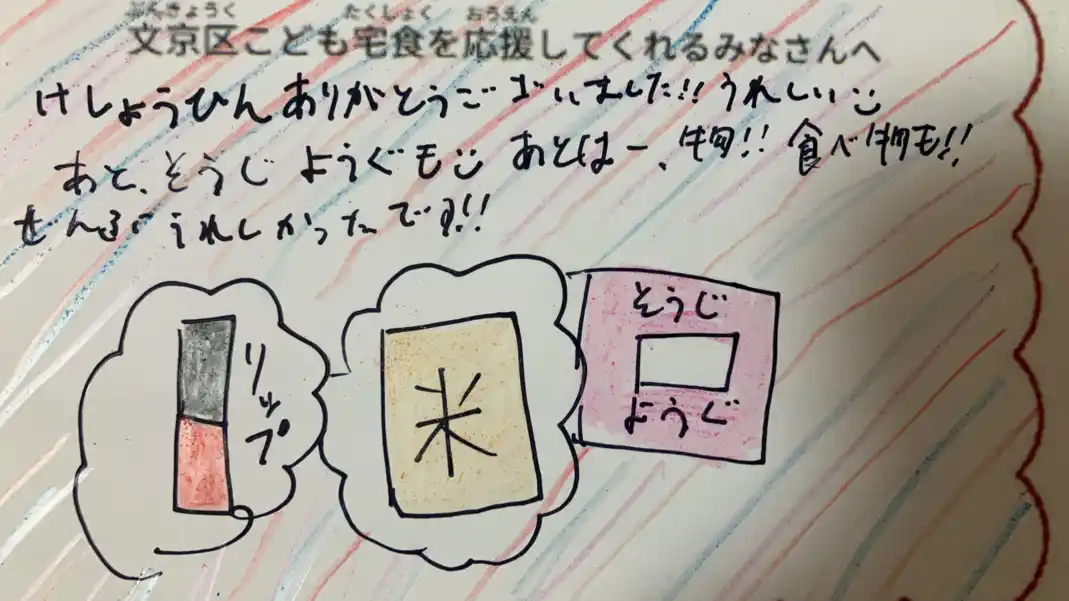 ぶんきょうく たくしょく おうえん
文京区こども宅食を応援してくれるみなさんへ
けしょうひんありがとうございました!!うれしい
あと、そうじようぐも あとはー、物!!食べ物も!!
ぜんぶうれしかったです!!
リップ
米
そうじ
ようぐ